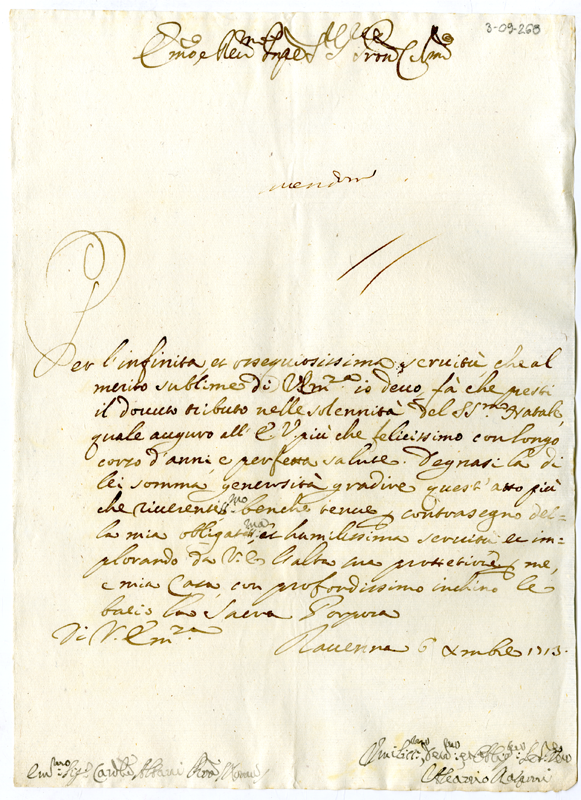 3-09-268
Em.o e Rev.mo
Per l'infinita et ossequiosissima servitù che al
merito sublime di V. Em.za io devo, fà che presti
il dovuto tributo nelle solennità del SS.mo Natale,
quale auguro all' E.V. più che felicissimo con longo
corso d'anni e perfetta salute. Degnasi la di
lei somma generosità gradire quest'atto più
che riverentis.mo benche tenue, contrasegno del-
la mia obligat.ma et humilissima servitù et im-
plorando da V.E. l'alta sua protettione me,
e mia Casa, con profondissimo inchino le
bacio la Sacra Porpora
Di V. Em.za
Ravenna 6 Xmbre 1713.
Card.le Albani Roma